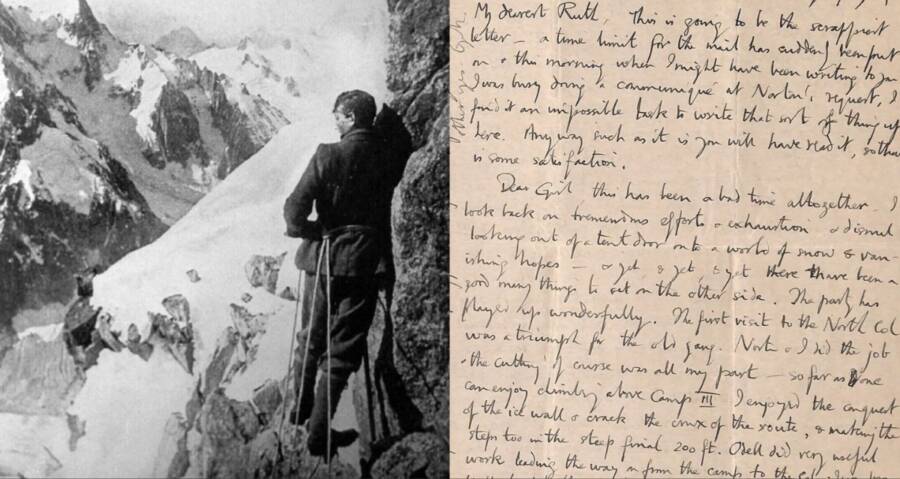 My dearest Ruth, This is going to be the scrappiest
letter — a time limit for the mail has suddenly been put
on & this morning when I might have been writing to you
I was busy doing a communiqué at Norton's request, I
find it an impossible task to write that sort of thing up
here. Anyway such as it is you will have read it, so that
is some satisfaction.
Dear Girl this has been a bad time altogether. I
look back on tremendous efforts & exhaustion & dismal
looking out of a tent door onto a world of snow & van-
ishing hopes — & yet, & yet, & yet there have been a
good many things to set on the other side. The party has
played up wonderfully. The first visit to the North Col
was a triumph for the old gang. Norton & I did the job
& the cutting of course was all my part — so far as one
can enjoy climbing above Camp III I enjoyed the conquest
of the ice wall & crack the crux of the route, & making the
steps too in the steep final 200 ft. Odell did very useful
work leading the way on from the camp to the Col